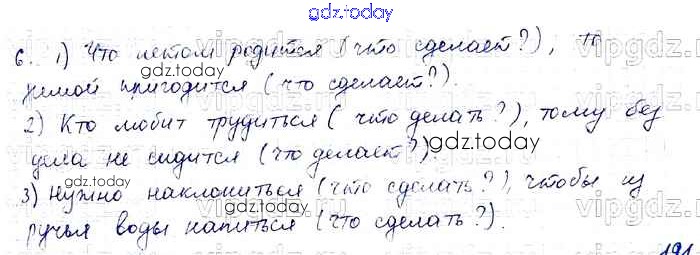 gdz.today
6. 1) Что летом родится (что сделает?), то
gdz.today
зимой пригодится (что сделает?)
2) Кто любит трудиться (что делать?), тому без
gdz.today
дела не сидится (что делает?)
3) нужно наклониться (что сделать?), чтобы из
gdz.today
ручья воды напиться (что сделать?).
191